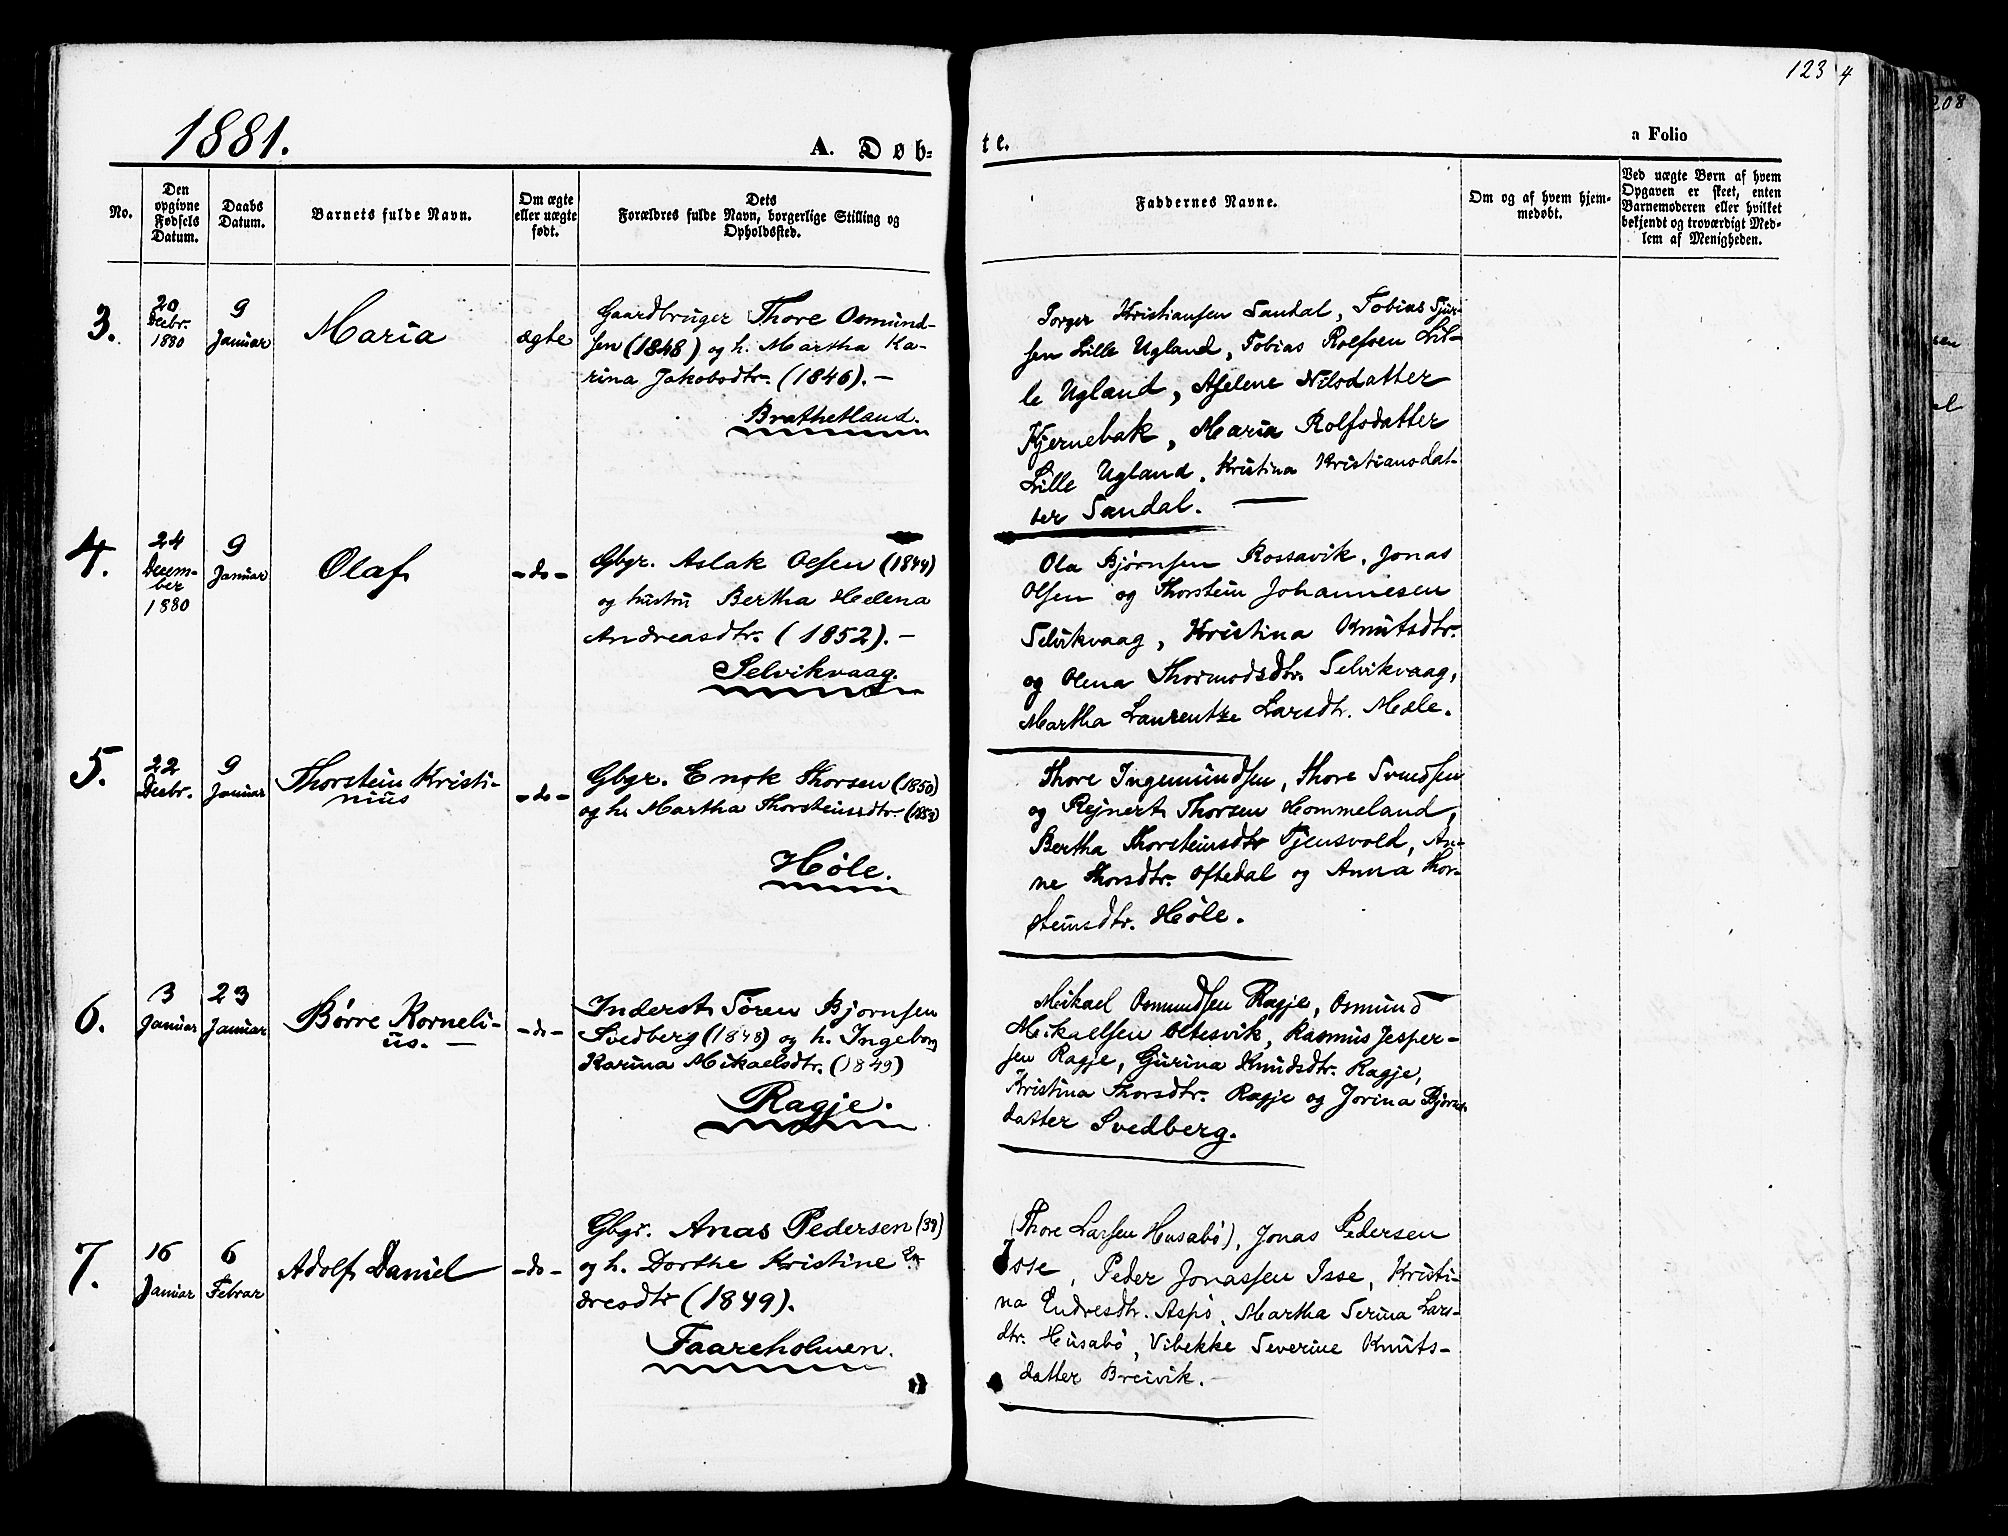 123
4
208
1881.
A. Døb-
te.
a Folio
No.
Den
opgivne
Fødsels
Datum.
Daabs
Datum.
Barnets fulde Navn.
Om ægte
eller uægte
født.
Dets
Forældres fulde Navn, borgerlige Stilling og
Opholdssted.
Faddernes Navne.
Om og af hvem hjem-
medøbt.
Ved uægte Børn af hvem
Opgaven er skeet, enten
Barnemoderen eller hvilket
bekjendt og troværdigt Med-
lem af Menigheden.
3.
20
Decbr.
1880
9
Januar
Maria
ægte
Gaardbruger Thore Osmund-
sen (1848) og h. Martha Ka-
rina Jakobsdtr. (1846). –
Brathetland.
Torger Kristiansen Sandal, Tobias Sjur-
sen Lille Ugland, Tobias Rolfsen Lil-
le Ugland, Aselene Nilsdatter
Kjernebak, Maria Rolfsdatter
Lille Ugland, Kristina Kristiansdat-
ter Sandal.
4.
24
Decem-
ber
1880
9
Januar
Olaf
- do -
Gbgr. Aslak Olsen (1844)
og hustru Bertha Helena
Andreasdtr. (1852). –
Selvikvaag.
Ola Bjørnsen Rossavik, Jonas
Olsen og Thorstein Johannesen
Selvikvaag, Kristina Knutsdtr.
og Olena Thormodsdtr. Selvikvaag,
Martha Laurentze Larsdtr. Mæle.
5.
22
Decbr.
9
Januar
Thorstein Kristi-
nius
- do -
Gbgr. Enok Thorsen (1850)
og h. Martha Thorsteinsdtr.
Høle.
Thore Ingemundsen, Thore Svendsen
og Rejnert Thorsen Hommeland,
Bertha Thorsteinsdtr Tjensvold, An-
ne Thorsdtr. Oftedal og Anna Thor-
steinsdtr. Høle.
6.
3
Januar
23
Januar
Børre Korneli-
us. –
- do -
Inderst Søren Bjørnsen
Svedberg (1848) og h. Ingeborg
Karina Mikaelsdtr. (1849)
Ragje.
Mikael Osmundsen Ragje, Osmund
Mikaelsen Oltesvik, Rasmus Jesper-
sen Ragje, Gurina Knudsdtr. Ragje,
Kristina Thorsdtr. Ragje og Jorina Bjørns-
datter Svedberg.
7.
16
Januar
6
Febrar
Adolf Daniel
- do -
Gbgr. Anas Pedersen (39)
og h. Dorthe Kristine En-
dresdtr (1849).
Faareholmen.
(Thore Larsen Husabø), Jonas Pedersen
Isse, Peder Jonassen Isse, Kristi-
na Endresdtr. Aspø, Martha Serina Lars-
dtr. Husabø, Vibekke Severine Knuts-
datter Breivik. –